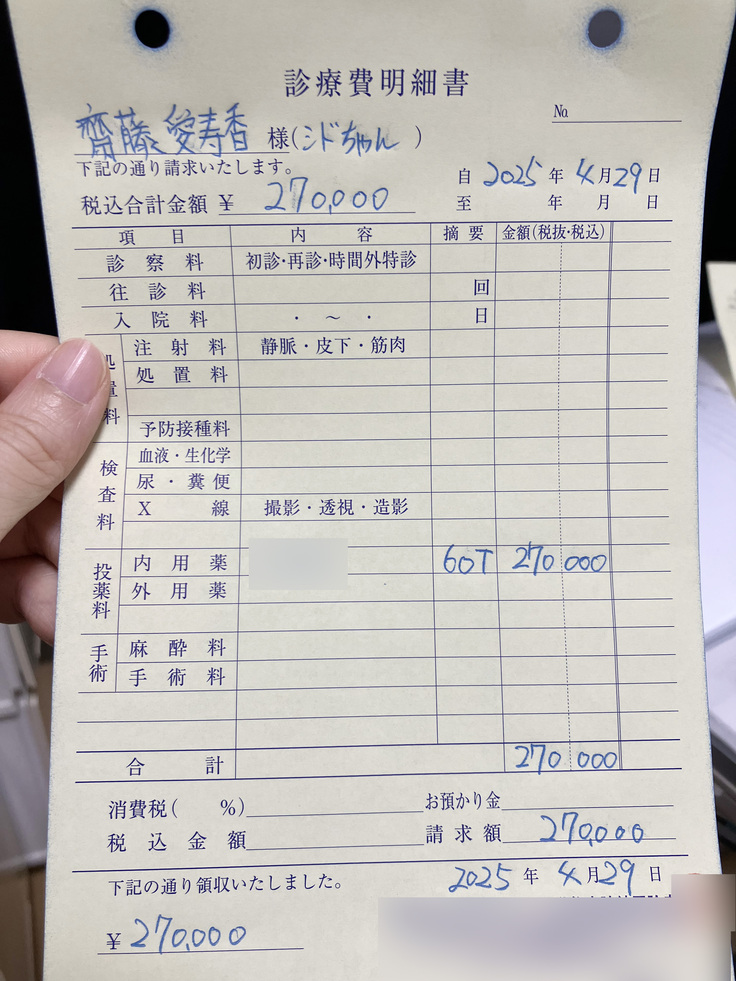 診療費明細書
№
齋藤愛寿香 様(シドちゃん)
下記の通り請求いたします。
自 2025年 4月29日
税込合計金額 ¥ 270,000
至 年 月 日
項目 内容 摘要 金額(税抜・税込)
診察料 初診・再診・時間外特診
往診料 回
入院料 ・ ~ ・ 日
処置料
注射料 静脈・皮下・筋肉
処置料
予防接種料
検査料
血液・生化学
尿・糞便
X線 撮影・透視・造影
投薬料
内用薬 60T 270 000
外用薬
手術
麻酔料
手術料
合計 270 000
消費税( %) お預かり金
税込金額 請求額 270,000
下記の通り領収いたしました。 2025年 4月29日
¥ 270,000